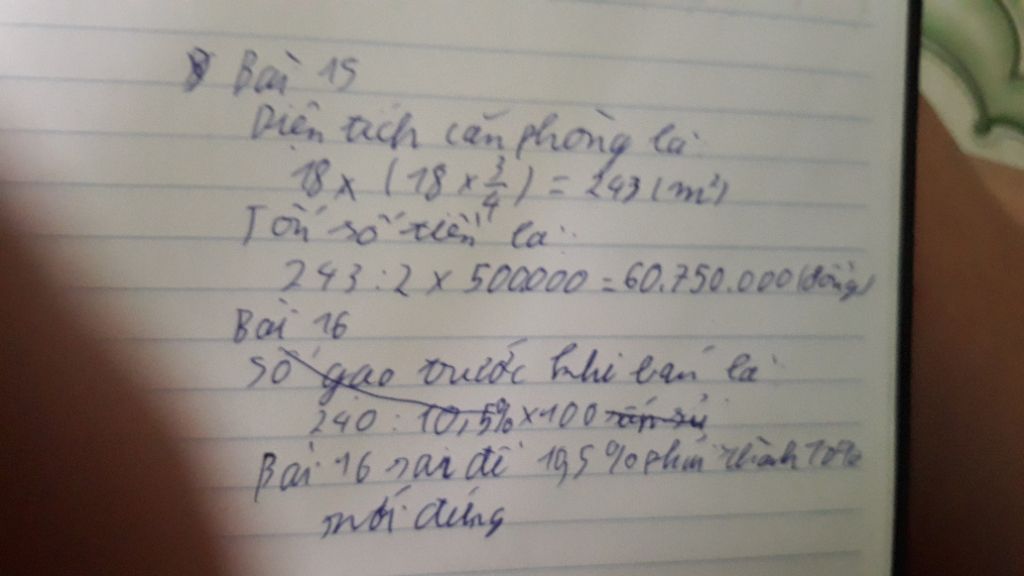 Bài 15
Diện tích căn phòng là:
18 x (18 x 3/4) = 243 (m²)
Tốn số tiền là:
243 : 2 x 500000 = 60.750.000 (đồng)
Bài 16
Số gạo trước khi bán là
240 : 10,5% x 100
Bài 16 sai đề 10,5% phải thành 10%
mới đúng